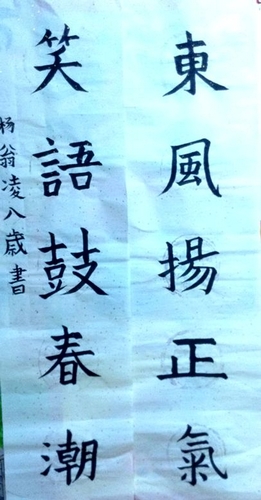 東風揚正氣
笑語鼓春潮
杨翁凌八歳書